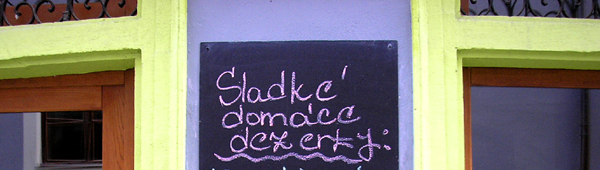 Sladké
domáce
dezerty: